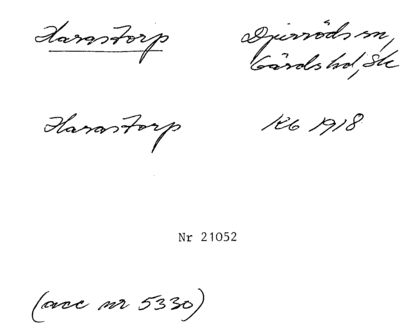 Harastorp Djurröds sn,
Gärds hd, Sk
Harastorp Kb 1918
Nr 21052
(acc nr 5330)